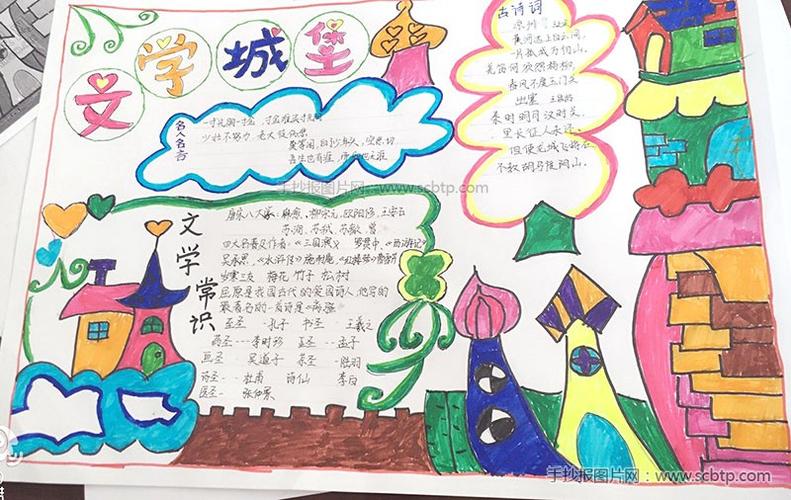 文学城堡
名人名言
一寸光阴一寸金,寸金难买寸光阴
少壮不努力,老大徒伤悲
莫等闲,白了少年头,空悲切
吾生也有涯,而知也无涯
古诗词
凉州词
黄河远上白云间,
一片孤城万仞山。
羌笛何须怨杨柳,
春风不度玉门关
出塞 王昌龄
秦时明月汉时关,
里长征人未还。
但使龙城飞将在,
不教胡马度阴山。
手抄报图片网:www.scbtp.com
文学常识
唐宋八大家:韩愈,柳宗元,欧阳修,王安石
苏洵,苏轼,苏辙,曾
四大名著及作者:《三国演义》罗贯中,《西游记》
吴承恩,《水浒传》施耐庵,《红楼梦》曹雪芹
岁寒三友 梅花 竹子 松树
屈原是我国古代的爱国诗人,他写的
最著名的一首诗是《离骚》
至圣--孔子 书圣--王羲之
药圣---李时珍 亚圣--孟子
画圣--吴道子 茶圣--陆羽
诗圣--杜甫 诗仙 李白
医圣--张仲景
手抄报图片网:www.scbtp.com